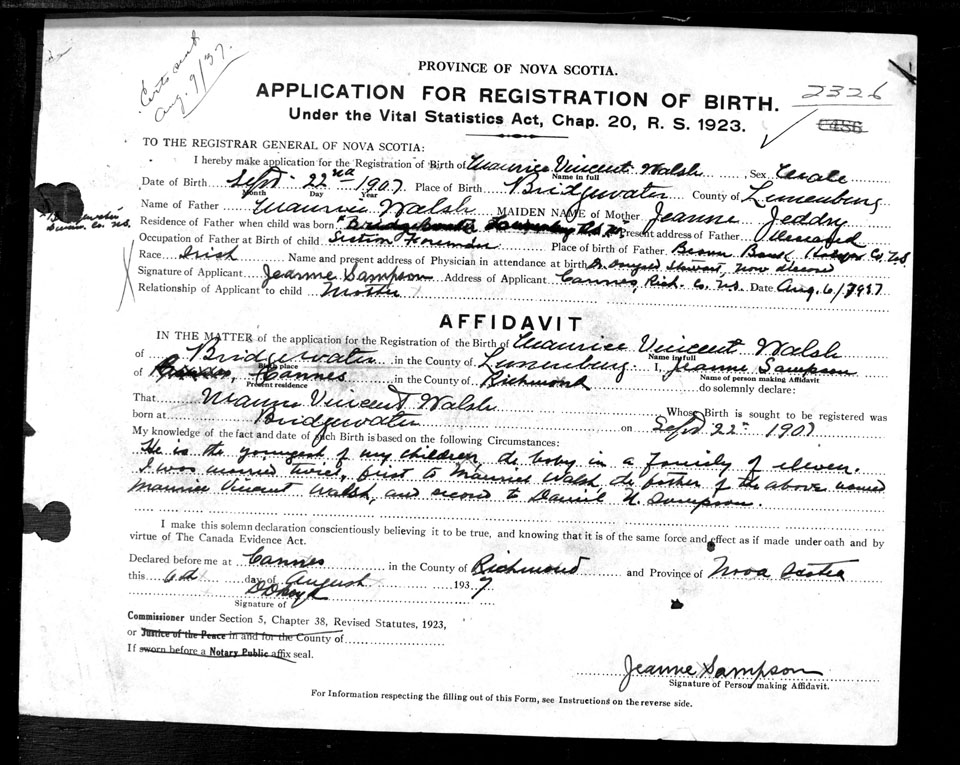 Certs sent
Aug. 9/37.
PROVINCE OF NOVA SCOTIA.
APPLICATION FOR REGISTRATION OF BIRTH.
2326
Under the Vital Statistics Act, Chap. 20, R. S. 1923.
TO THE REGISTRAR GENERAL OF NOVA SCOTIA:
I hereby make application for the Registration of Birth of Maurice Vincent Walsh Sex
Name in full
Date of Birth Sept 22nd 1907 Place of Birth Bridgewater County of Lunenburg
Month Day Year
Name of Father Maurice Walsh MAIDEN NAME of Mother Jeanne Jeddry
Residence of Father when child was born Bridgewater Present address of Father Deceased
Occupation of Father at Birth of child Section Foreman Place of birth of Father Beaver Bank Halifax Co. N.S.
Race Irish Name and present address of Physician in attendance at birth Dr. Stewart, now
Signature of Applicant Jeanne Sampson Address of Applicant Cannes, Rich. Co. N.S. Date Aug. 6/1937
Relationship of Applicant to child Mother
AFFIDAVIT
IN THE MATTER of the application for the Registration of the Birth of Maurice Vincent Walsh
Name in full
of Bridgewater in the County of Lunenburg. I, Jeanne Sampson
Birth place Name of person making Affidavit
of Cannes in the County of Richmond do solemnly declare:
Present residence
That Maurice Vincent Walsh Whose Birth is sought to be registered was
born at Bridgewater on Sept 22nd 1907
My knowledge of the fact and date of such Birth is based on the following Circumstances:
He is the youngest of my children, de baby in a family of eleven.
I was married twice, first to Maurice Walsh de father of the above named
Maurice Vincent Walsh, and second to Daniel N. Sampson.
I make this solemn declaration conscientiously believing it to be true, and knowing that it is of the same force and effect as if made under oath and by
virtue of The Canada Evidence Act.
Declared before me at Cannes in the County of Richmond and Province of Nova Scotia
this 6th day of August 1937
Signature of
Commissioner under Section 5, Chapter 38, Revised Statutes, 1923,
or Justice of the Peace in and for the County of
If sworn before a Notary Public affix seal.
Jeanne Sampson
Signature of Person making Affidavit.
For Information respecting the filling out of this Form, see Instructions on the reverse side.